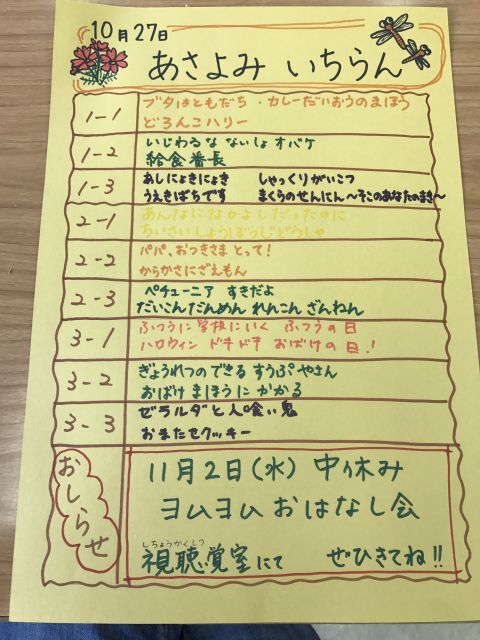 10月27日
あさよみ いちらん
1-1
ブタはともだち・カレーだいおうのまほう
どろんこハリー
1-2
いじわるな ないしょオバケ
給食番長
1-3
あしにょきにょき しゃっくりがいこつ
うえきばちです まくらのせんにん～そこのあなたのまき～
2-1
あんなになかよしだったのに
ちいさいしょうぼうじどうしゃ
2-2
パパ、おつきさまとって!
からかさにざえもん
2-3
ペチューニア すきだよ
だいこんだんめん れんこんざんねん
3-1
ふつうに学校にいく ふつうの日
ハロウィン ドキドキ おばけの日!
3-2
ぎょうれつのできる すうぷやさん
おばけ まほうに かかる
3-3
ゼラルダと人喰い鬼
おまたせクッキー
おしらせ
11月2日(水) 中休み
ヨムヨム おはなし会
しちょうかくしつ
視聴覚室にて ぜひきてね!!